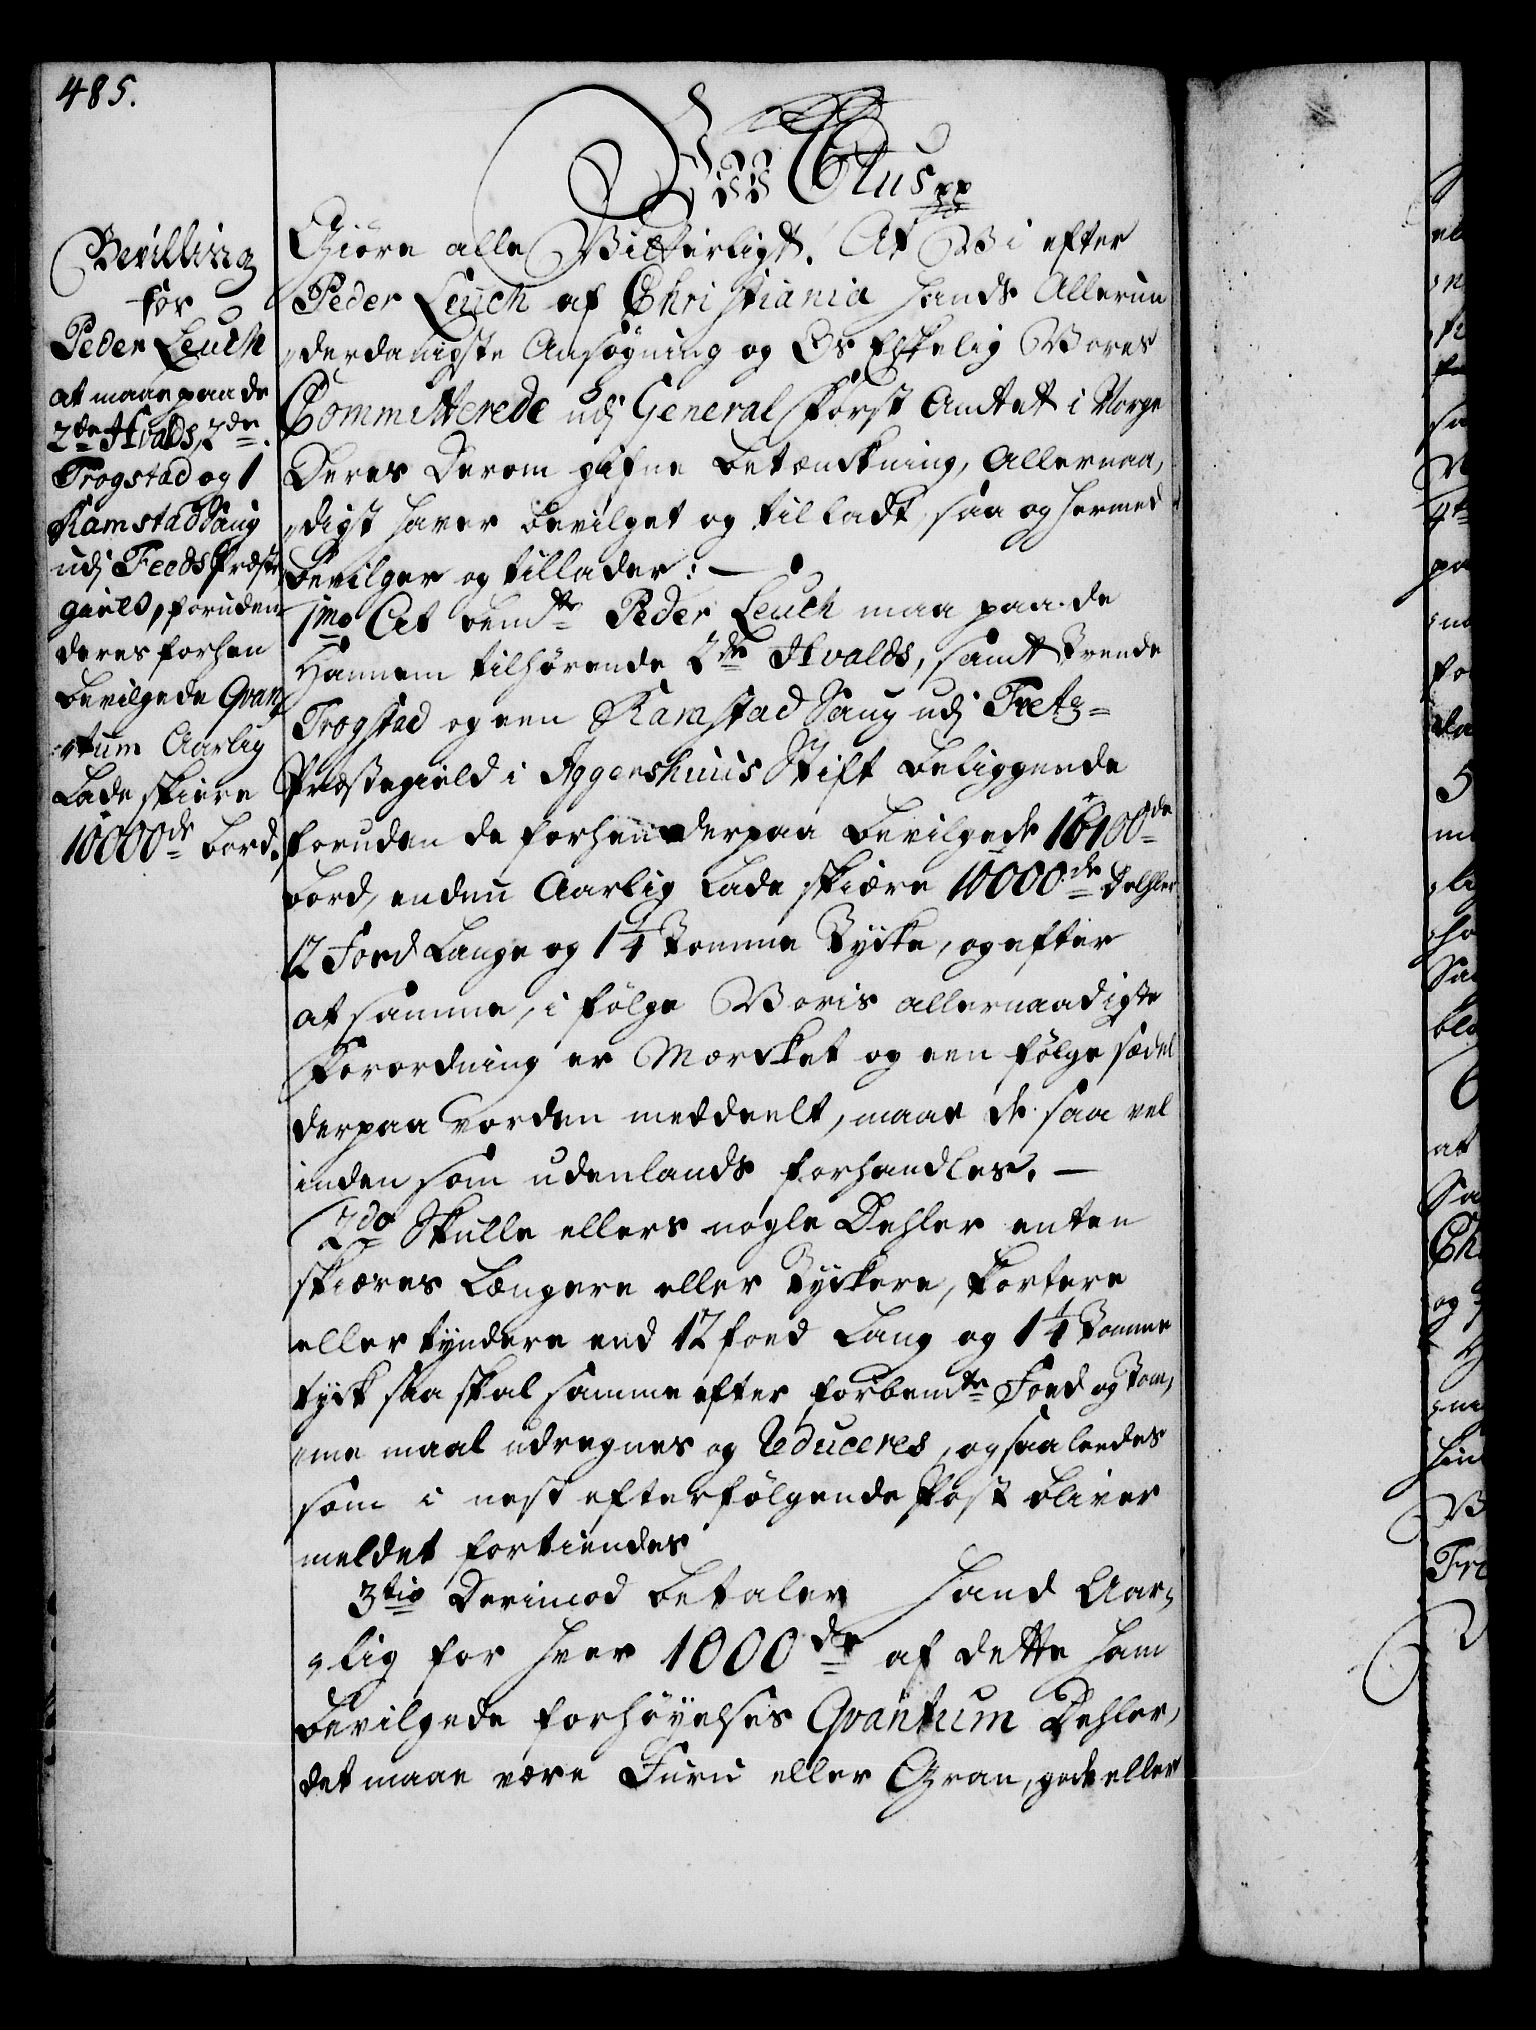 485.
Wii Ctus pp
Bevilling
for
Peder Leuch
at maae paa de
2de Hvalds, 2de
Trogstad og 1
Ramstad Saug
udj Feeds Præste
gield, foruden
deres forhen
bevilgede Qvan
tum Aarlig
Lade skiere
10000de bord.
Giöre alle Vitterligt! At Vi efter
Peder Leuch af Christiania hands Allerun
derdanigste Ansøgning og Os Elskelig Vores
Committerede udj General Forst Amtet i Norge
Deres Derom gifne betænkning, Allernaa,
digst haver bevilget og tilladt, saa og hermed
bevilger og tillader: —
1mo At bemte Peder Leuch maa paa de
Hannem tilhørende 2de Hvalds, samt Tvende
Trogstad og een Ramstad Saug udj Fretz=
Præstegield i Aggershuus Stift beliggende
foruden de forhen derpaa bevilgede 16100de
bord, endnu Aarlig lade skiære 10000de Dehler
12 Foed Lange og 1¼ Tomme Tycke, og efter
at samme, i følge Voris allernaadigste
Forordning er Mærcket og een følge sædel
derpaa vorden meddeelt, maae de saa vel
inden som udenlands forhandles. —
2do Skulle ellers nogle Dehler enten
skiæres Længere eller Tyckere, kortere
eller tyndere end 12 foed Lang og 1¼ Tomme
tyck saa skal samme efter forbemte Foed og Tom,
me maal udregnes og Reduceres, og saaleedes
som i nest efterfølgende Post bliver
meldet fortiendes
3tio Derimod betaler Hand Aar,
lig for hver 1000de af dette ham
bevilgede forhøyelses Qvantum Dehler,
det maae være Furu eller Gran, gode eller